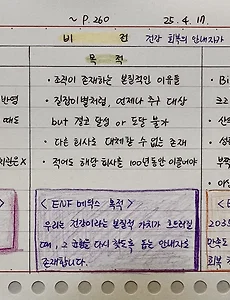 ~ P.260
25.4.17
비 전 건강 회복의 안내자가
목 적
· 조직이 존재하는 본질적인 이유들
· 길잡이별처럼, 언제나 추구 대상
but 결코 달성 or 도달 불가
· 다른 회사로 대체할 수 없는 존재
· 적어도 해당 회사를 100년동안 이끌어야
반영
때도
X
< ENF 메딕스 목적 >
우리는 건강이라는 본질적 가치가 흐트러질
때, 그 균형을 다시 찾도록 돕는 안내자로
존재합니다.
· Bi
크고
· 산
· 부족
< E
2035
만족도
회복